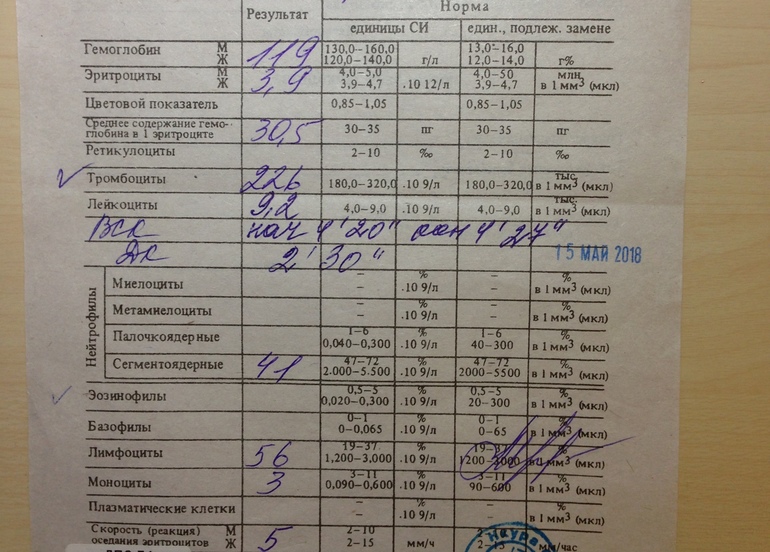 Результат Норма
единицы СИ един., подлеж. замене
Гемоглобин М Ж 119 130,0–160,0 120,0–140,0 г/л 13,0–16,0 12,0–14,0 г%
Эритроциты М Ж 3,9 4,0–5,0 3,9–4,7 .10 12/л 4,0–50 3,9–4,7 млн. в 1 мм3 (мкл)
Цветовой показатель 0,85–1,05 0,85–1,05
Среднее содержание гемо-
глобина в 1 эритроците 30,5 30–35 пг 30–35 пг
Ретикулоциты 2–10 ‰ 2–10 ‰
Тромбоциты 226 180,0–320,0 .10 9/л 180,0–320,0 тыс. в 1 мм3 (мкл)
Лейкоциты 9,2 4,0–9,0 .10 9/л 4,0–9,0 тыс. в 1 мм3 (мкл)
ВСК нач 4'20" окн 4'27"
ДК 2'30" 15 МАЙ 2018
Нейтрофилы
Миелоциты – – % .10 9/л – – % в 1 мм3 (мкл)
Метамиелоциты – – % .10 9/л – – % в 1 мм3 (мкл)
Палочкоядерные 1–6 0,040–0,300 % .10 9/л 1–6 40–300 % в 1 мм3 (мкл)
Сегментоядерные 41 47–72 2.000–5.500 % .10 9/л 47–72 2000–5500 % в 1 мм3 (мкл)
Эозинофилы 0,5–5 0,020–0,300 % .10 9/л 0,5–5 20–300 % в 1 мм3 (мкл)
Базофилы 0–1 0–0,065 % .10 9/л 0–1 0–65 % в 1 мм3 (мкл)
Лимфоциты 56 19–37 1,200–3,000 % .10 9/л 19–37 1200–3000 % в 1 мм3 (мкл)
Моноциты 3 3–11 0,090–0,600 % .10 9/л 3–11 90–600 % в 1 мм3 (мкл)
Плазматические клетки – – % .10 9/л – – % в 1 мм3 (мкл)
Скорость (реакция)
оседания эритроцитов М Ж 5 2–10 2–15 мм/ч 2–15 мм/час